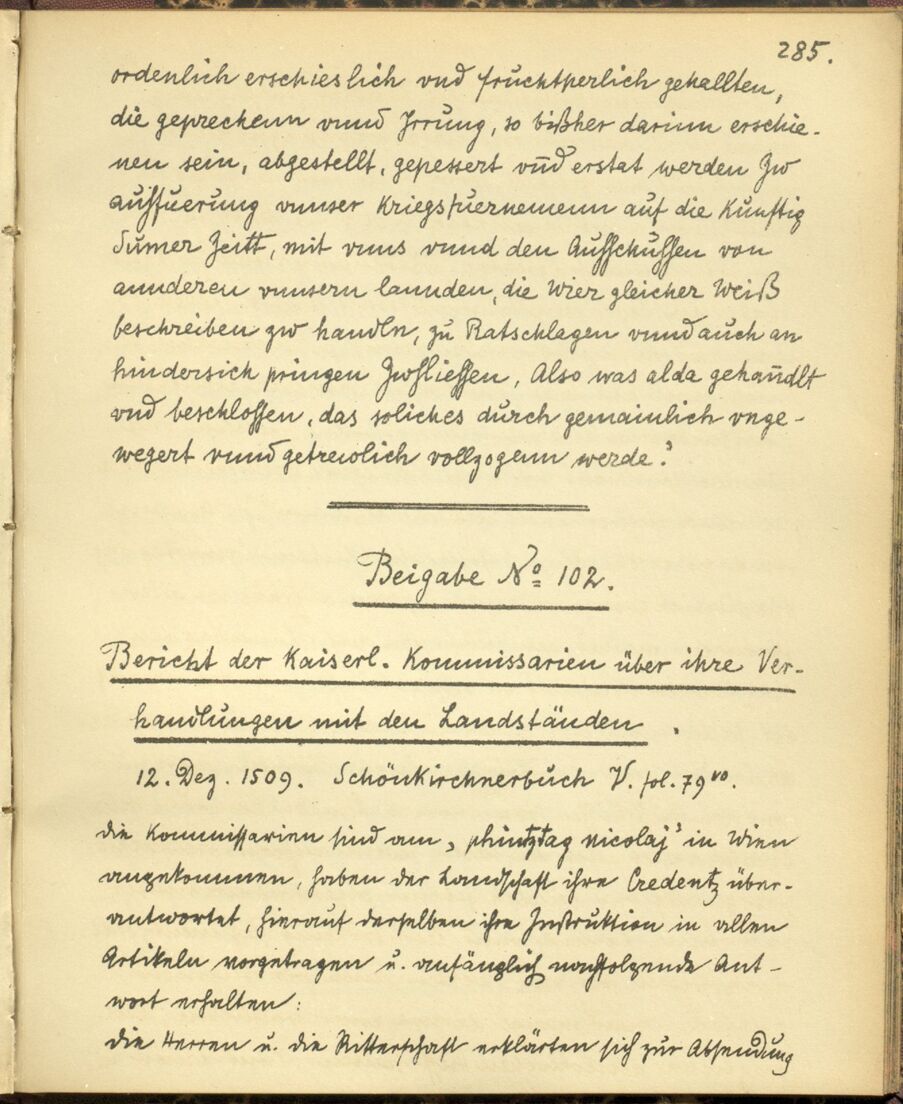 285.
ordenlich erschieslich vnd fruchtperlich gehallten,
die geprechenn vnnd Jrrung, so bißher darinn erschie-
nen sein, abgestellt, gepessert vnd erstat werden Zw
auffuerung vnnser Kriegsfuernemenn auf die Kunftig
Sumer Zeitt, mit vnns vnnd den Auffschuffen von
annderen vnnsern lannden, die Wier gleicher Weiß
beschreiben zw handln, zu Ratschlagen vnnd auch an
hindersich pringen Zwfliessen, Also was alda gehandlt
vnd beschlossen, das soliches durch gemainlich vnge-
wegert vnnd getreiolich vollzogenn werde."
Beigabe No 102.
Bericht der Kaiserl. Kommissarien über ihre Ver-
handlungen mit den Landständen.
12. Dez. 1509. Schönkirchnerbuch V. fol. 79vo.
die Kommissarien sind am „phintztag nicolaj" in Wien
angekommen, haben der Landschaft ihre Credentz über-
antwortet, hierauf derselben ihre Instruktion in allen
Artikeln vorgetragen u. anfänglich nachfolgende Ant-
wort erhalten:
die Herren u. die Ritterschaft erklärten sich zur Absendung